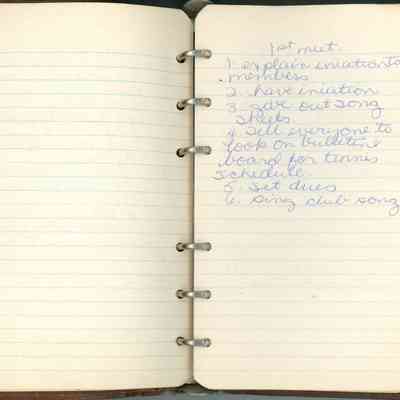 1st meet.
1. explain iniation to
members
2. have iniation
3. give out song
sheets
4. tell everyone to
look on bulletine
board for tennis
schedule.
5. set dues
6. sing club song